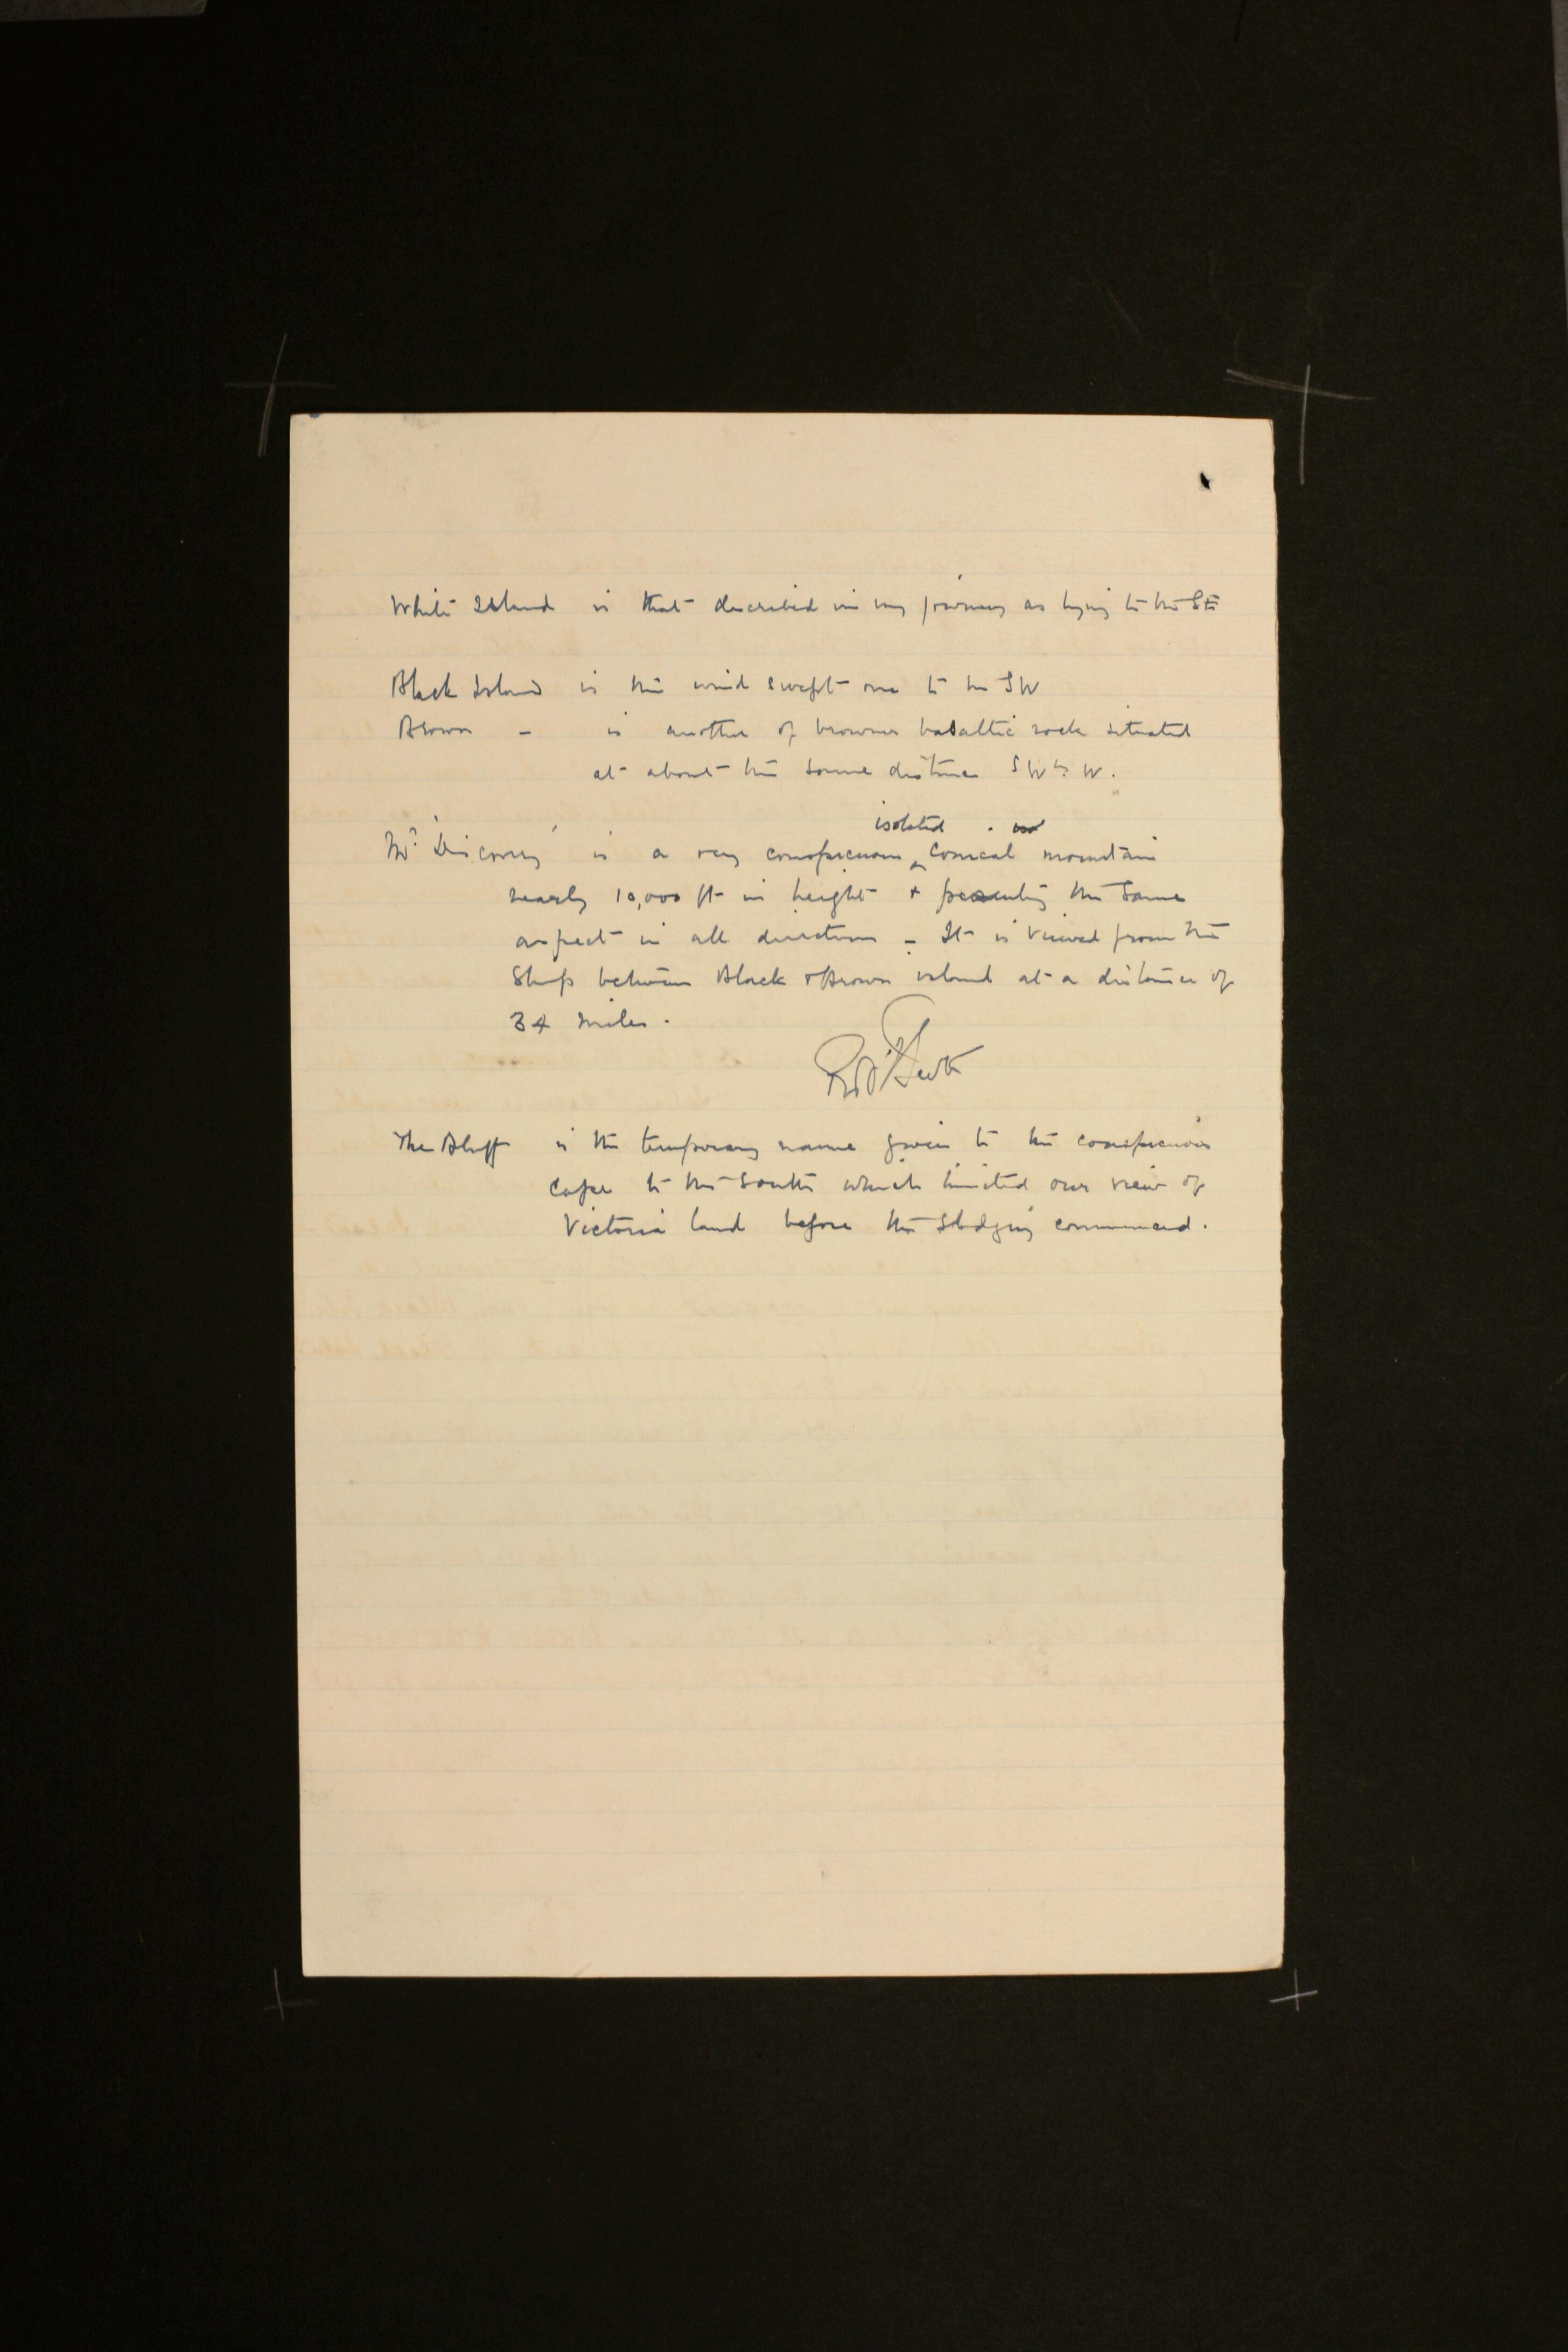 White Island is that described in my journey as lying to the Sth
Black Island is the wind swept one to the SW
Brown - is another of browner basaltic rock situated
at about the same distance SW by W.
isolated
Mt 'Discovery' is a very conspicuous ‸ conical mountain
nearly 10,000 ft in height & presenting the same
aspect in all directions - It is viewed from the
Ship between Black & Brown island at a distance of
34 miles.
The Bluff is the temporary name given to the conspicuous
Cape to the South which limited our view of
Victoria land before the Sledging commenced.